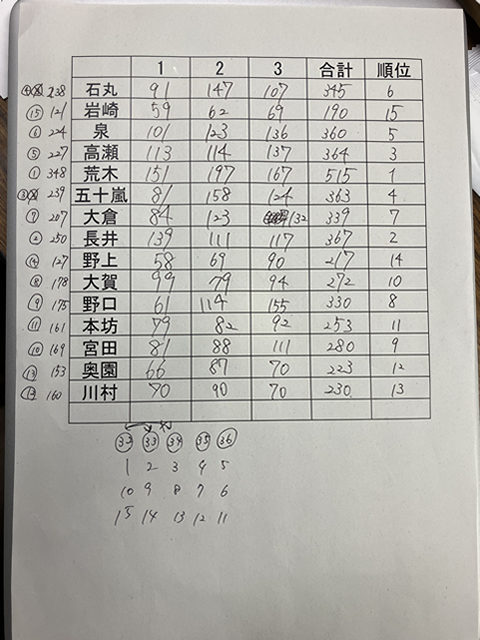 1 2 3 合計 順位
④ 238 石丸 91 147 107 345 6
⑮ 121 岩崎 59 62 69 190 15
⑥ 224 泉 101 123 136 360 5
⑤ 227 高瀬 113 114 137 364 3
① 348 荒木 151 197 167 515 1
③ 239 五十嵐 81 158 124 363 4
⑦ 207 大倉 84 123 132 339 7
② 250 長井 139 111 117 367 2
⑭ 127 野上 58 69 90 217 14
⑧ 178 大賀 99 79 94 272 10
⑨ 175 野口 61 114 155 330 8
⑪ 161 本坊 79 82 92 253 11
⑩ 169 宮田 81 88 111 280 9
⑬ 153 奥園 66 87 70 223 12
160 川村 70 90 70 230 13
㉜ ㉝ ㉞ ㉟ ㊱
1 2 3 4 5
10 9 8 7 6
15 14 13 12 11